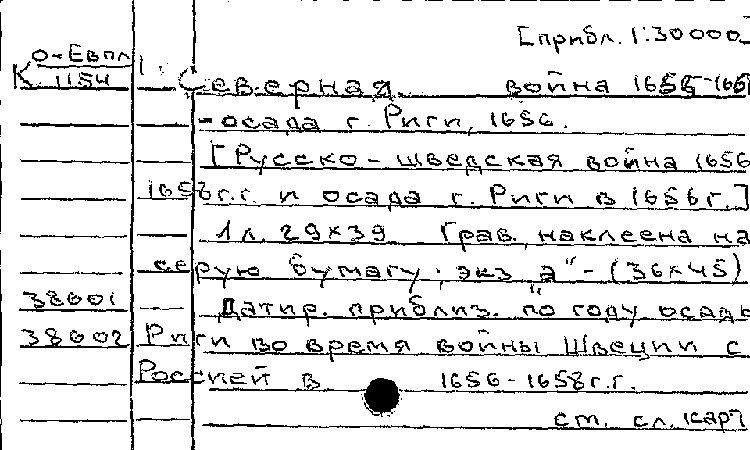 [прибл. 1:30000]
О-Евпл
К 1154
Северная война 1655-166
- осада г. Риги, 1656.
[Русско-шведская война 1656
1658г.г. и осада г. Риги в 1656г.]
1л. 29×39 Грав. наклеена на
серую бумагу; экз "а" - (36×45)
38001 Датир. приблиз. по году осады
38002 Риги во время войны Швеции с
Россией в 1656-1658г.г.
см. сл. карт